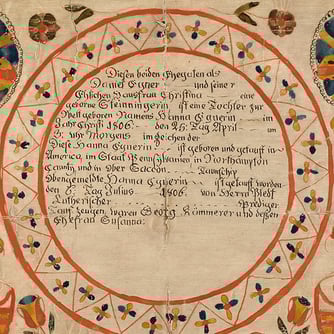 Diesen beiden Ehegatten als
Daniel Egner und seiner
Ehlichen Hausfrau Christina eine
geborne Steinningerin ist eine Tochter zur
Welt geboren Namens Hanna Egnerin im
Jahr Christi 1806. den 25. Tag April um
3. Uhr Morgens im Zeichen der
Diese Hanna Egnerin ist geboren und getauft in
America, im Staat Pennsilvanien in Northampton
County, und in Ober Sacon Taunschip
Obengemeldte Hanna Egnerin ist getauft worden
den 8. Tag Julius 1806. von Herrn
Lutherischer Prediger
Tauf zeugen, waren Georg Kämmerer und dessen
Ehefrau Susanna